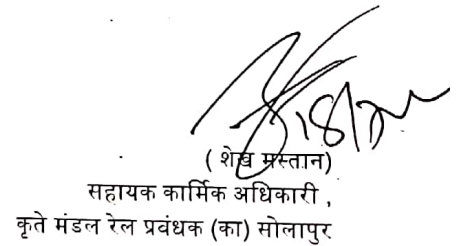 ( शेख मस्तान)
सहायक कार्मिक अधिकारी ,
कृते मंडल रेल प्रबंधक (का) सोलापुर